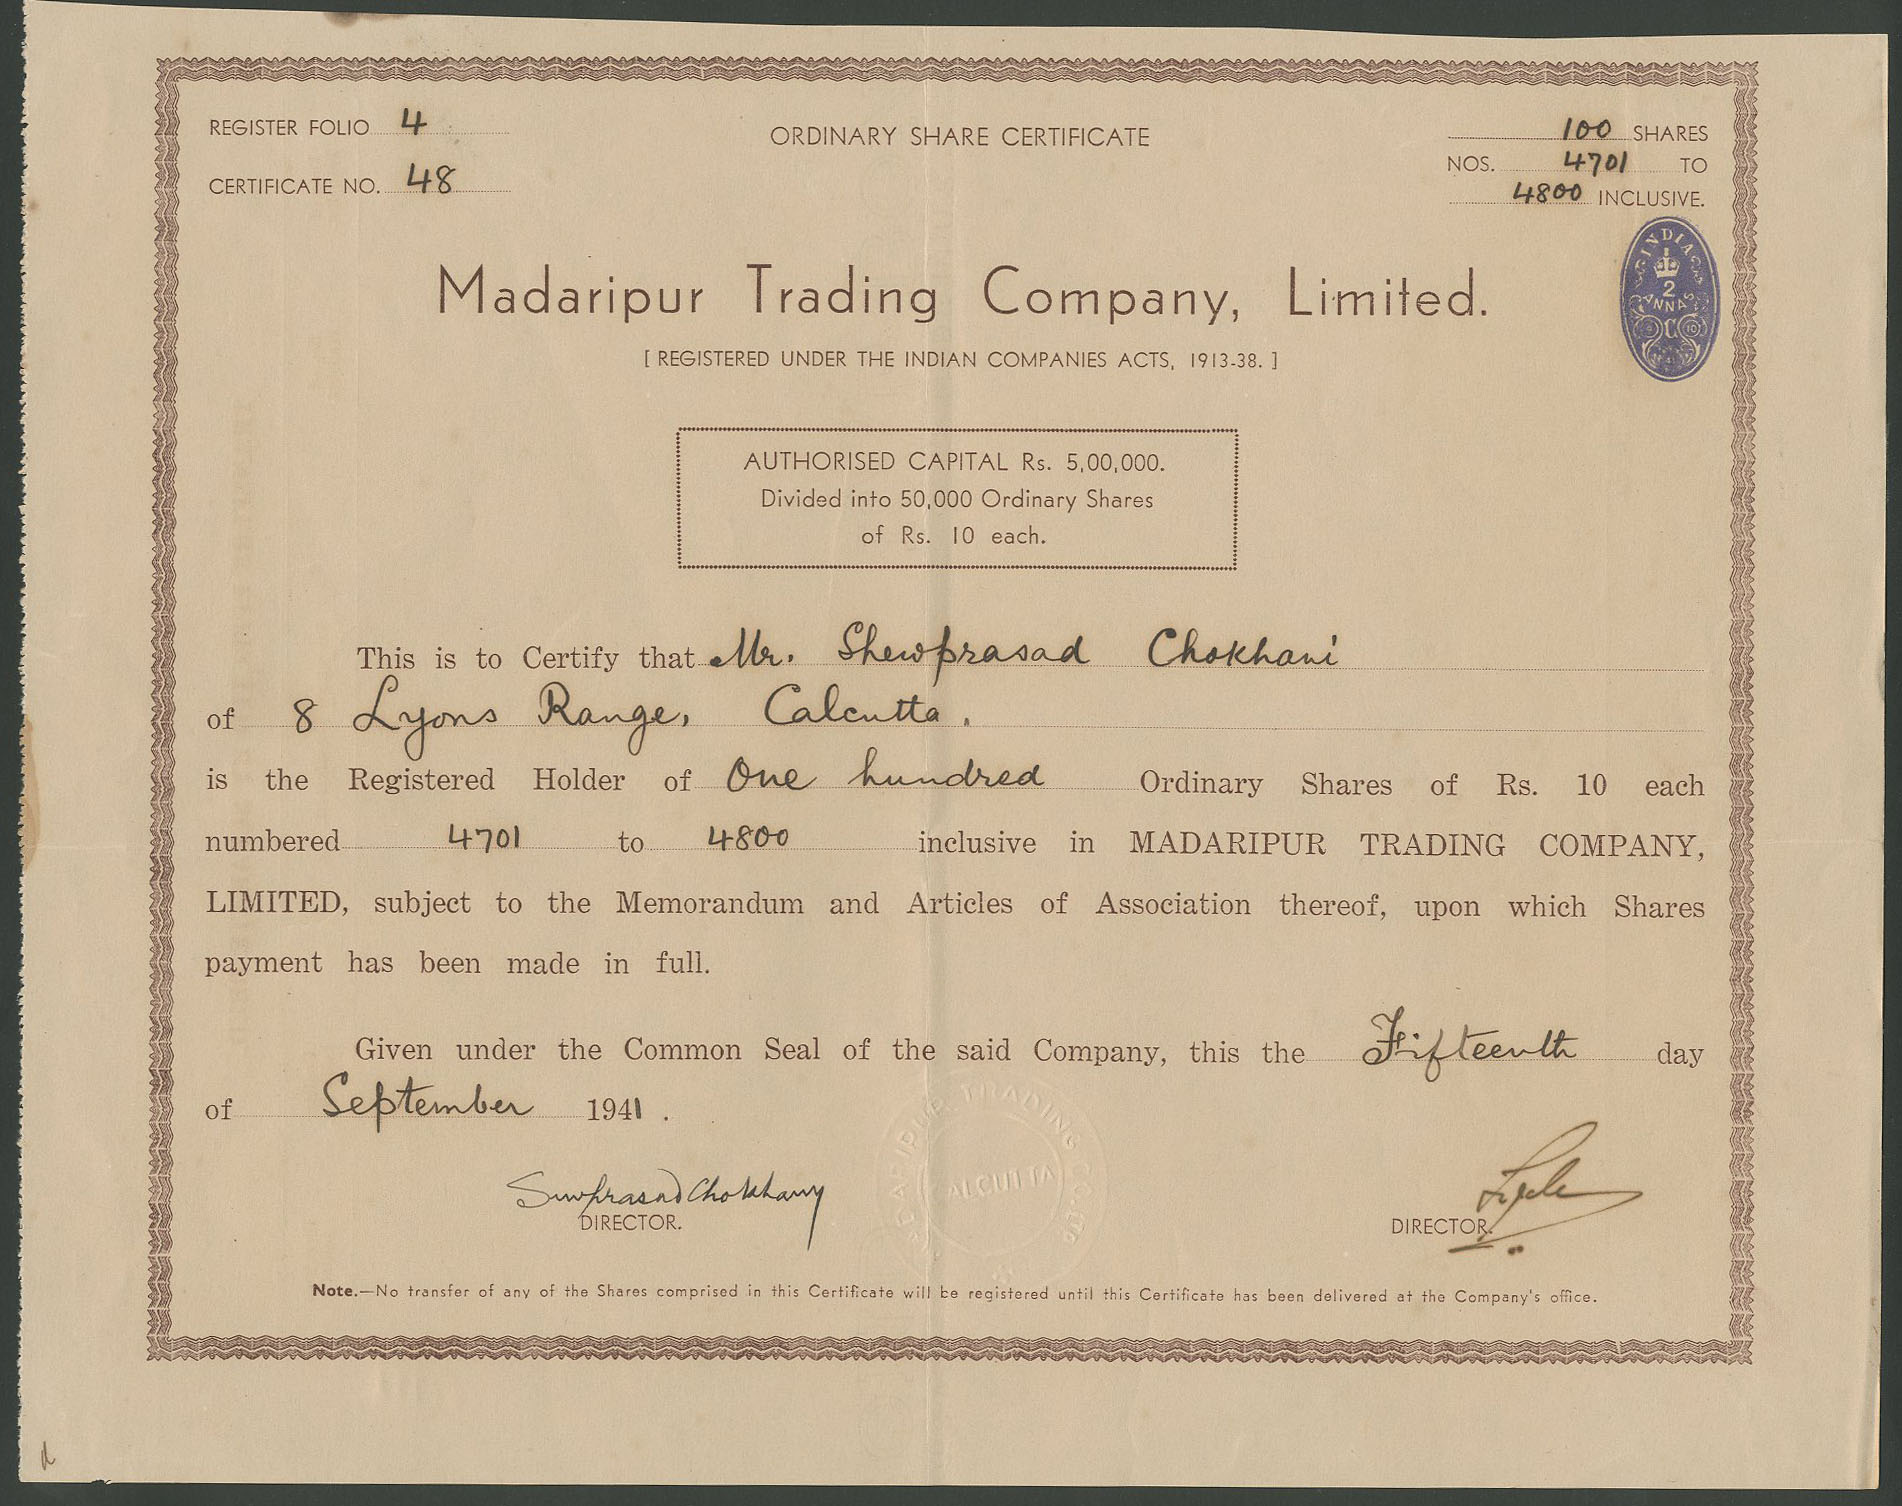 REGISTER FOLIO 4
CERTIFICATE NO. 48
ORDINARY SHARE CERTIFICATE
100 SHARES
NOS. 4701 TO
4800 INCLUSIVE.
INDIA
2
ANNAS
Madaripur Trading Company, Limited.
[ REGISTERED UNDER THE INDIAN COMPANIES ACTS, 1913-38. ]
AUTHORISED CAPITAL Rs. 5,00,000.
Divided into 50,000 Ordinary Shares
of Rs. 10 each.
This is to Certify that Mr. Shewprasad Chokhani
of 8 Lyons Range, Calcutta.
is the Registered Holder of One hundred Ordinary Shares of Rs. 10 each
numbered 4701 to 4800 inclusive in MADARIPUR TRADING COMPANY,
LIMITED, subject to the Memorandum and Articles of Association thereof, upon which Shares
payment has been made in full.
Given under the Common Seal of the said Company, this the Fifteenth day
of September 1941.
MADARIPUR TRADING CO. LTD.
CALCUTTA
Suwprasad Chokhany
DIRECTOR.
DIRECTOR.
Note.—No transfer of any of the Shares comprised in this Certificate will be registered until this Certificate has been delivered at the Company's office.